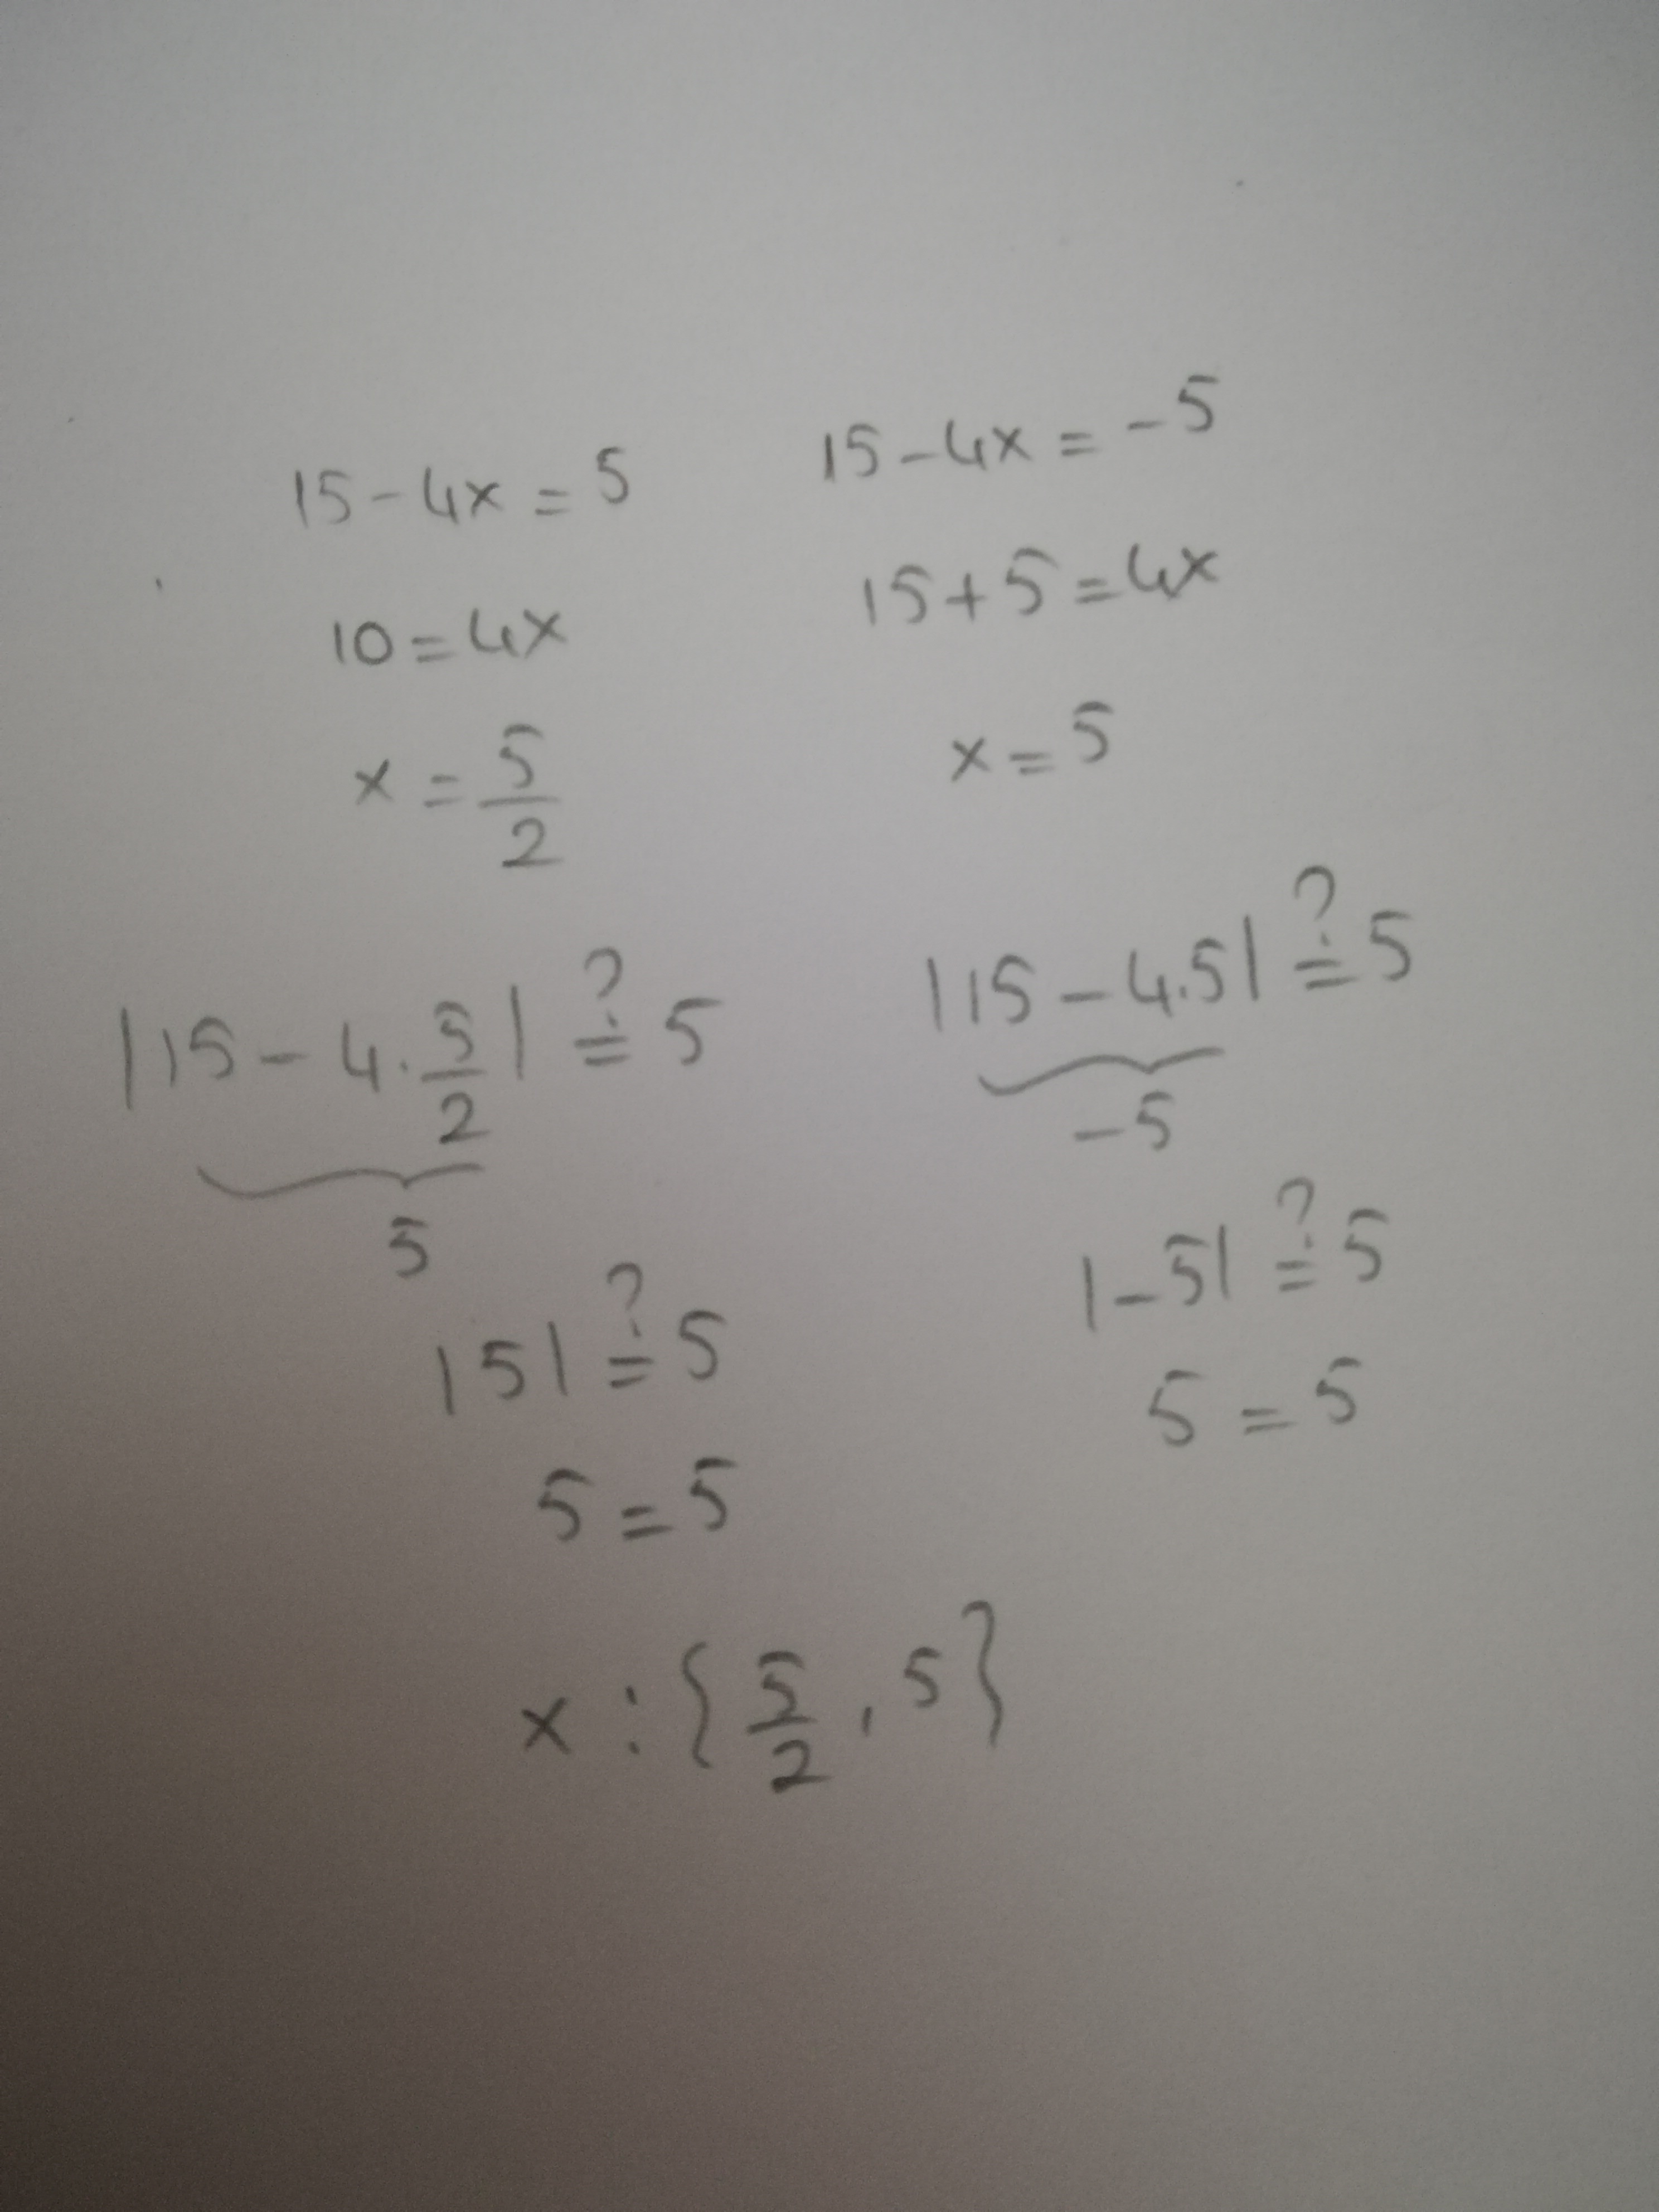 15-4x=5
10=4x
x=5/2
|15-4.5/2|≟5
5
|5|≟5
5=5
15-4x=-5
15+5=4x
x=5
|15-4.5|≟5
-5
|-5|≟5
5=5
x:{5/2,5}